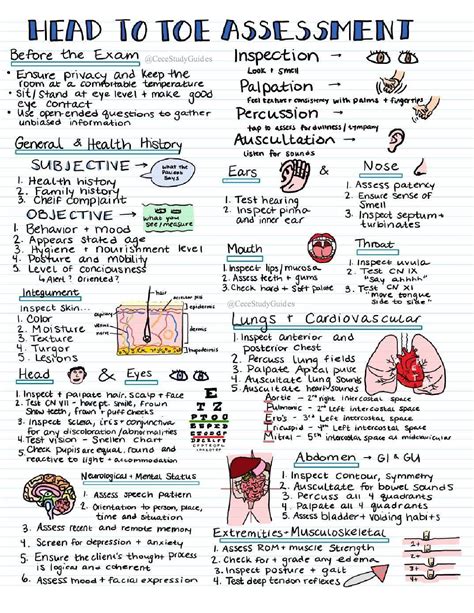 HEAD TO TOE ASSESSMENT
Before the Exam
@CeceStudyGuides
• Ensure privacy and keep the
room at a comfortable temperature
• Sit/Stand at eye level + make good
eye contact
• Use open-ended questions to gather
unbiased information
Inspection
Look + Smell
Palpation
Feel texture + consistency with palms + fingertips
Percussion
tap to assess for dullness/tympany
Auscultation
listen for sounds
General & Health History
SUBJECTIVE
WHAT THE
Patient
SAYS
1. Health history
2. Family history
3. Cheif complaint
OBJECTIVE
What you
see/measure
1. Behavior + mood
2. Appears stated age
3. Hygiene + nourishment level
4. Posture and mobility
5. Level of consciousness
Alert? Oriented?
Ears
&
Nose
1. Test hearing
2. Inspect pinna
and inner ear
1. Assess patency
2. Ensure Sense
of Smell
3. Inspect septum +
turbinates
Mouth
1. Inspect lips/mucosa
2. Assess teeth + gums
3. Check hard + soft palate
Throat
1. Inspect uvula
2. Test CN IX
"Say ahhhh"
3. Test CN XI
"move tongue
side to side"
@CeceStudyGuides
Integument
Inspect Skin...
1. Color
2. Moisture
3. Texture
4. Turgor
5. Lesions
hair
epidermis
dermis
hypodermis
vein
nerve
Lungs + Cardiovascular
1. Inspect anterior and
posterior chest
2. Percuss lung fields
3. Palpate Apical pulse
4. Auscultate Lung Sounds
5. Auscultate heart sounds
Aortic - 2nd right intercostal space
Pulmonic - 2nd Left intercostal space
Erb's - 3rd Left Intercostal space
Tricuspid - 4th Left Intercostal space
Mitral - 5th Intercostal space at midclavicular
Head & Eyes
1. Inspect + palpate hair, scalp + face
2. Test CN VII - have pt. smile, frown
Show teeth, frown + puff cheeks
3. Inspect sclera, iris + conjunctiva
for any discoloration/abnormalities
4. Test vision - Snellen chart
5. Check pupils are equal, round and
reactive to light + accommodation
E
T Z
Neurological + Mental Status
1. Assess speech pattern
2. Orientation to person, place,
time and situation
3. Assess recent and remote memory
4. Screen for depression + anxiety
5. Ensure the client's thought process
is logical and coherent
6. Assess mood + facial expression
Abdomen → GI & GU
1. Inspect Contour, Symmetry
2. Auscultate for bowel sounds
3. Percuss all 4 quadrants
4. Palpate all 4 quadrants
5. Assess bladder + voiding habits
Extremities - Musculoskeletal
1. Assess ROM + muscle Strength
2. Check for + grade any edema
3. Inspect posture + gait
4. Test deep tendon reflexes
1+
2+
3+
4+